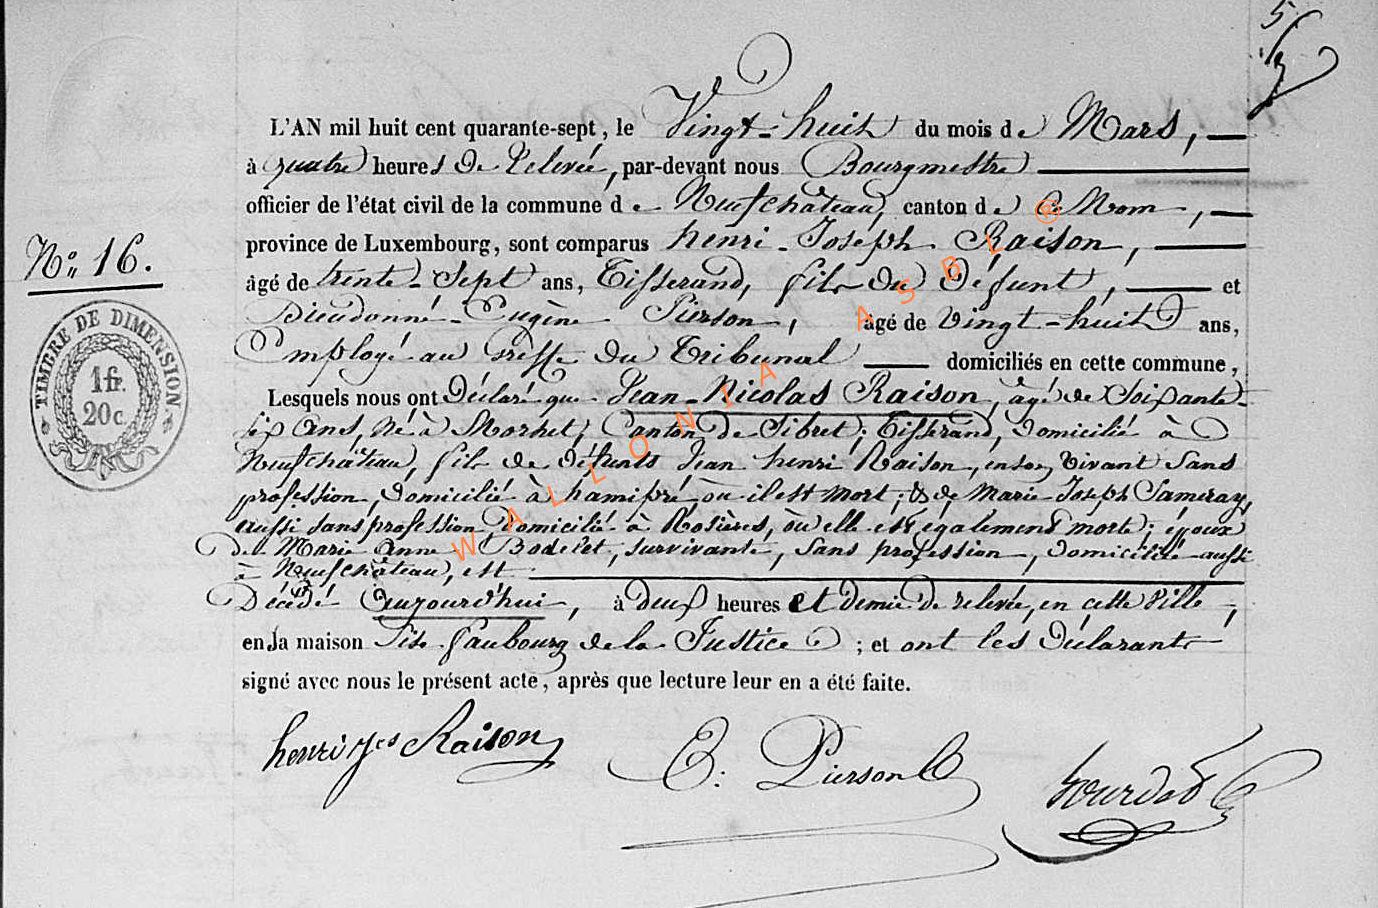 5
L'AN mil huit cent quarante-sept, le Vingt-huit du mois de Mars,
à quatre heures de relevée, par-devant nous Bourgmestre
officier de l'état civil de la commune de Neufchâteau, canton de Mom,
province de Luxembourg, sont comparus henri-Joseph Raison,
No: 16.
âgé de trente-Sept ans, Tisserand, fils du Défunt, et
Dieudonné-Eugène Pierson, âgé de Vingt-huit ans,
TIMBRE DE DIMENSION
1 fr.
20 c.
Employé au Greffe du Tribunal domiciliés en cette commune,
Lesquels nous ont Déclaré que Jean-Nicolas Raison, âgé de Soixante-
six ans, né à Morhet, Canton de Sibret; Tisserand, domicilié à
Neufchâteau, fils de défunts Jean henri Raison, en son Vivant Sans
profession, domicilié à hamipré où il est mort; & de Marie-Joseph Sameray,
aussi sans profession Domicilié à Rosières, où elle est également morte; époux
de Marie Anne Bodelet, survivante, Sans profession, domiciliée aussi
à Neufchâteau, est
Décédé Aujourd'hui, à deux heures et demie de relevée, en cette Ville,
en la maison Sise faubourg de la Justice; et ont les déclarants
signé avec nous le présent acte, après que lecture leur en a été faite.
henri Jes Raison
E: Pierson
Bourdon
WALLONIA ASBL ®